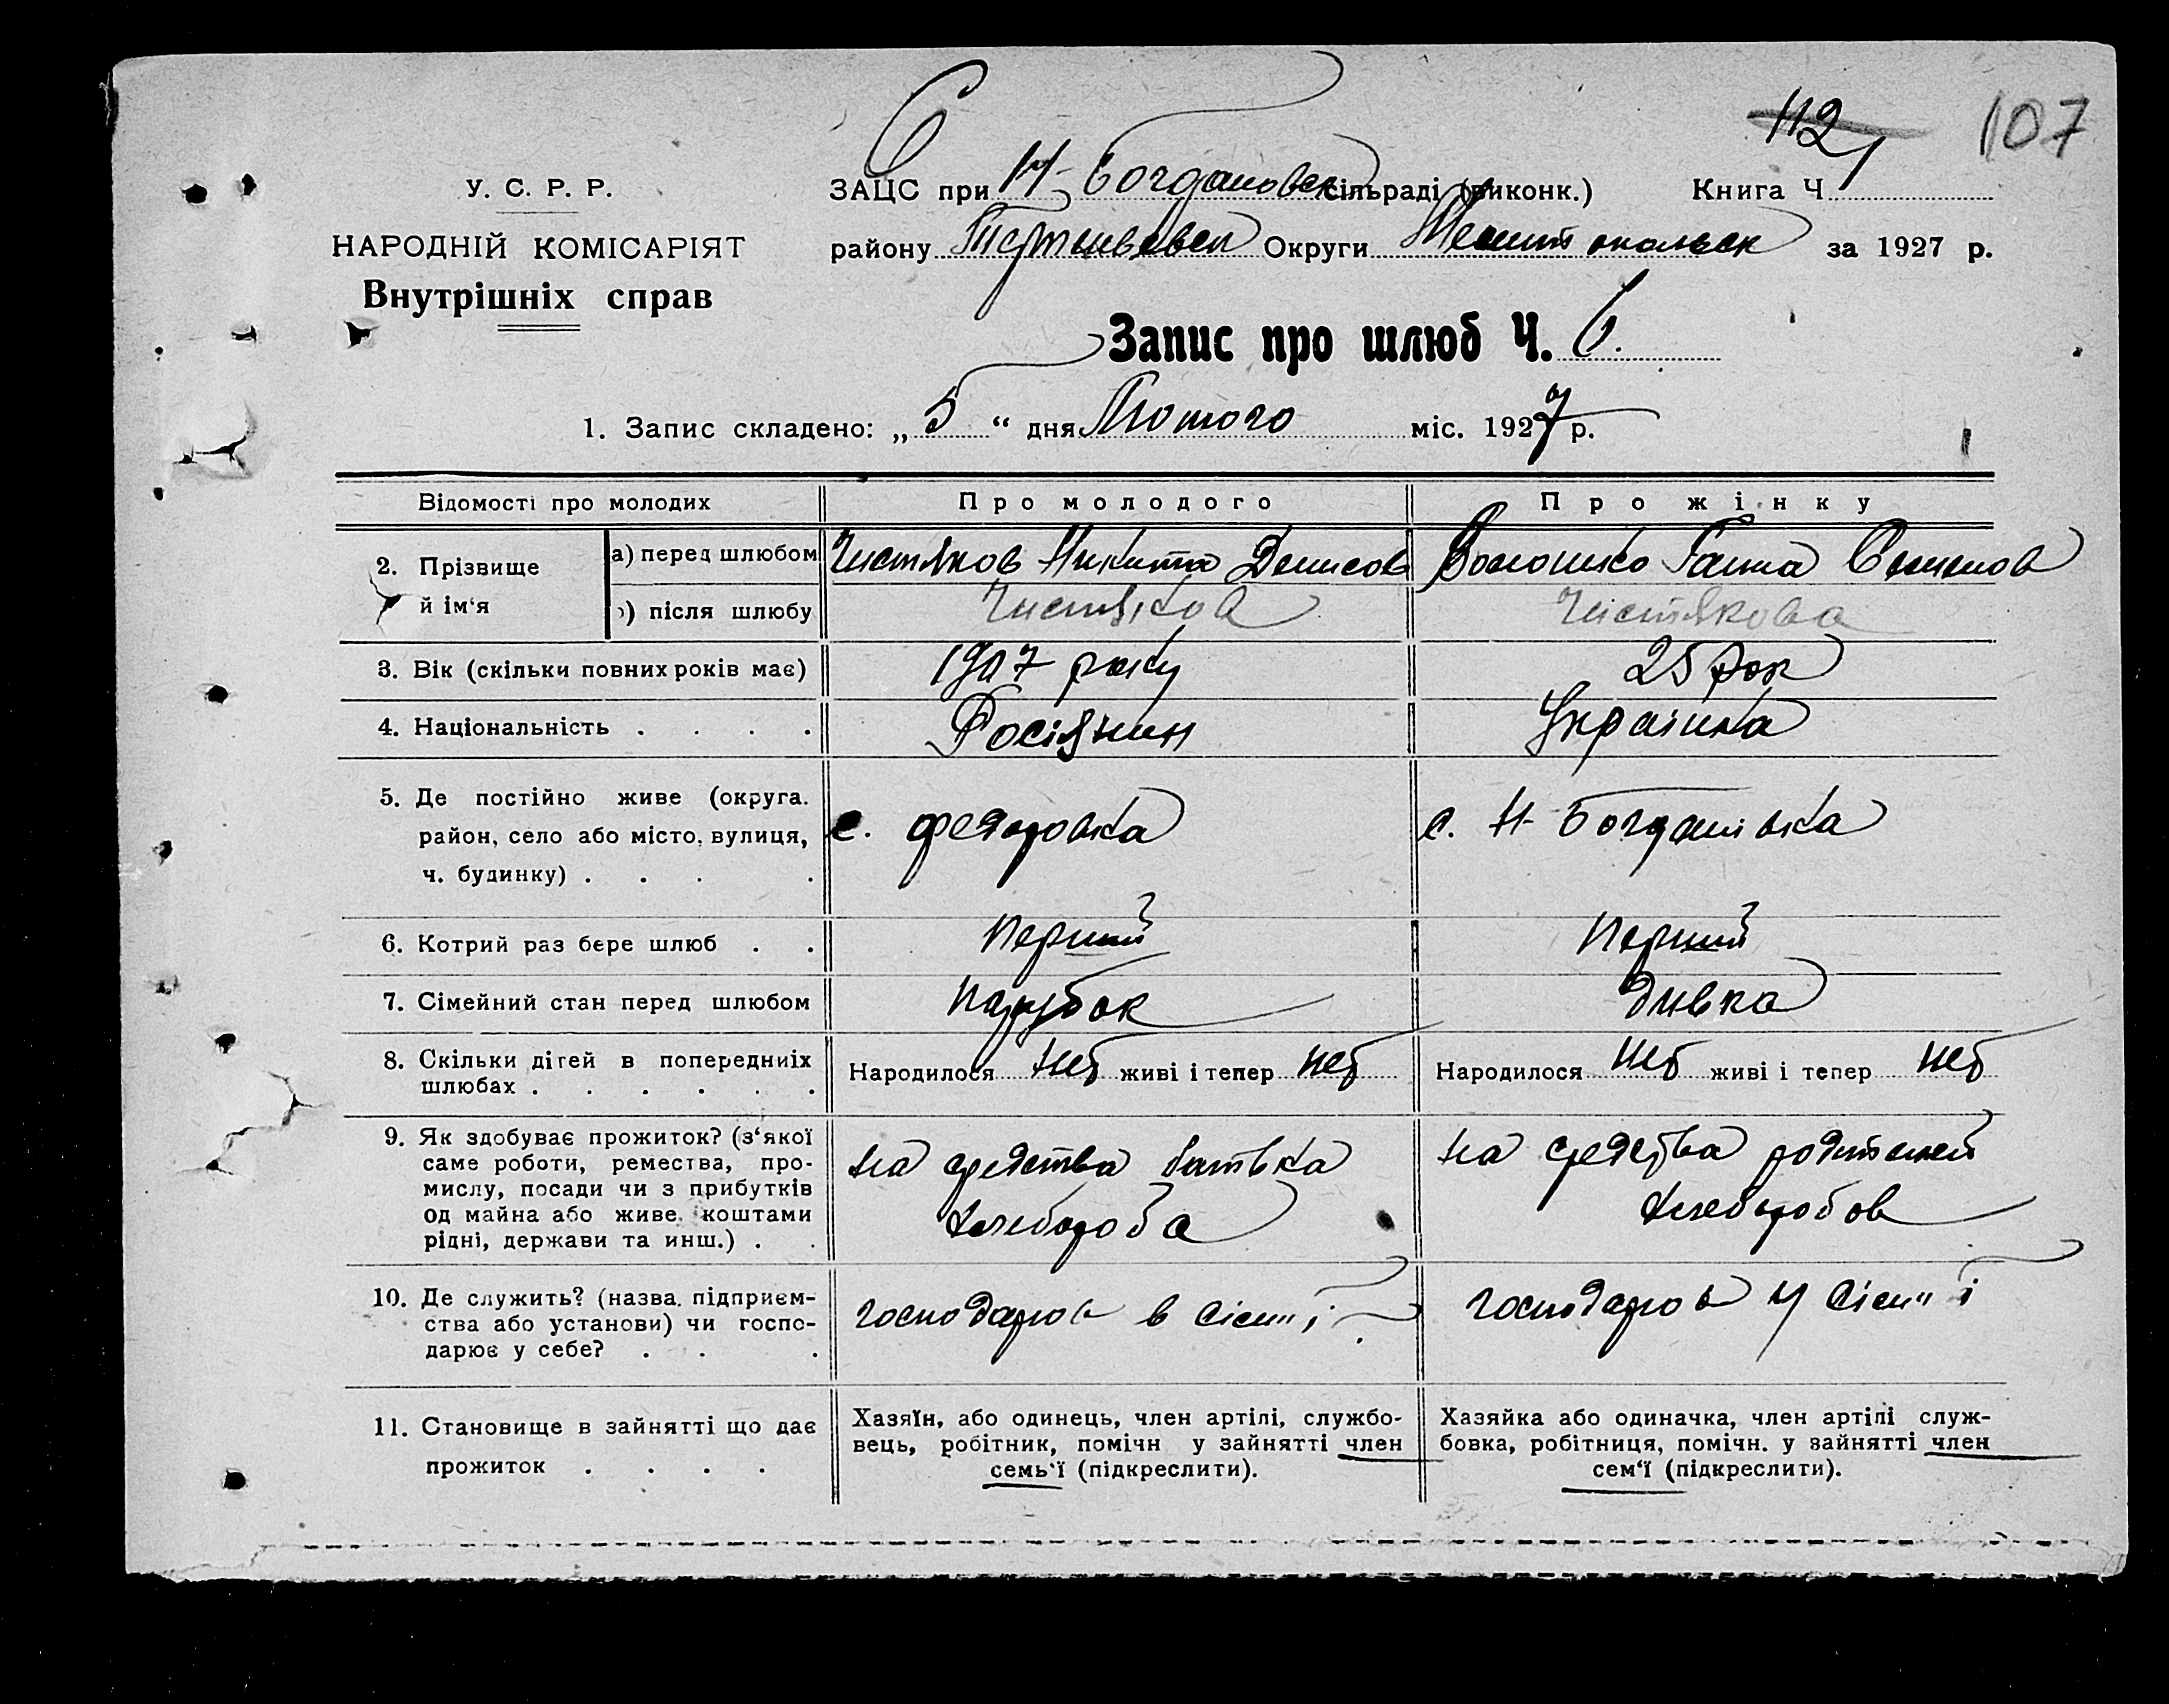 6
112
107
У. С. Р. Р.
НАРОДНІЙ КОМІСАРІЯТ
Внутрішніх справ
ЗАЦС при Н-Богдановск сільраді (виконк.) Книга Ч. 1
району Терпеньевск Округи Мелитопольск за 1927 р.
Запис про шлюб Ч. 6.
1. Запис складено: „ 5 “ дня Лютого міс. 1927 р.
Відомості про молодих
Про молодого
Про жінку
2. Прізвище й ім‘я
а) перед шлюбом
Чистяков Никита Денисов
Волошко Ганна Семенов
б) після шлюбу
Чистяков
Чистякова
3. Вік (скільки повних років має)
1907 року
25 рок
4. Національність . . . .
Росіянин
Украінка
5. Де постійно живе (округа, район, село або місто, вулиця, ч. будинку) . . . .
с. Федоровка
с. Н-Богданівка
6. Котрий раз бере шлюб . .
Перший
Перший
7. Сімейний стан перед шлюбом
Парубок
Дивка
8. Скільки дітей в попередниіх шлюбах . . . . . .
Народилося неб живі і тепер неб
Народилося неб живі і тепер неб
9. Як здобуває прожиток? (з‘якої саме роботи, ремества, промислу, посади чи з прибутків од майна або живе коштами рідні, держави та инш.) . .
на средства батька
хлебороба
на средства родителей
хлеборобов
10. Де служить? (назва підприємства або установи) чи господарює у себе? . . .
господаров в сісті
господаров у сісті
11. Становище в зайнятті що дає прожиток . . . .
Хазяїн, або одинець, член артілі, службовець, робітник, помічн у зайнятті член семь‘ї (підкреслити).
Хазяйка або одиначка, член артілі службовка, робітниця, помічн. у зайнятті член сем‘ї (підкреслити).